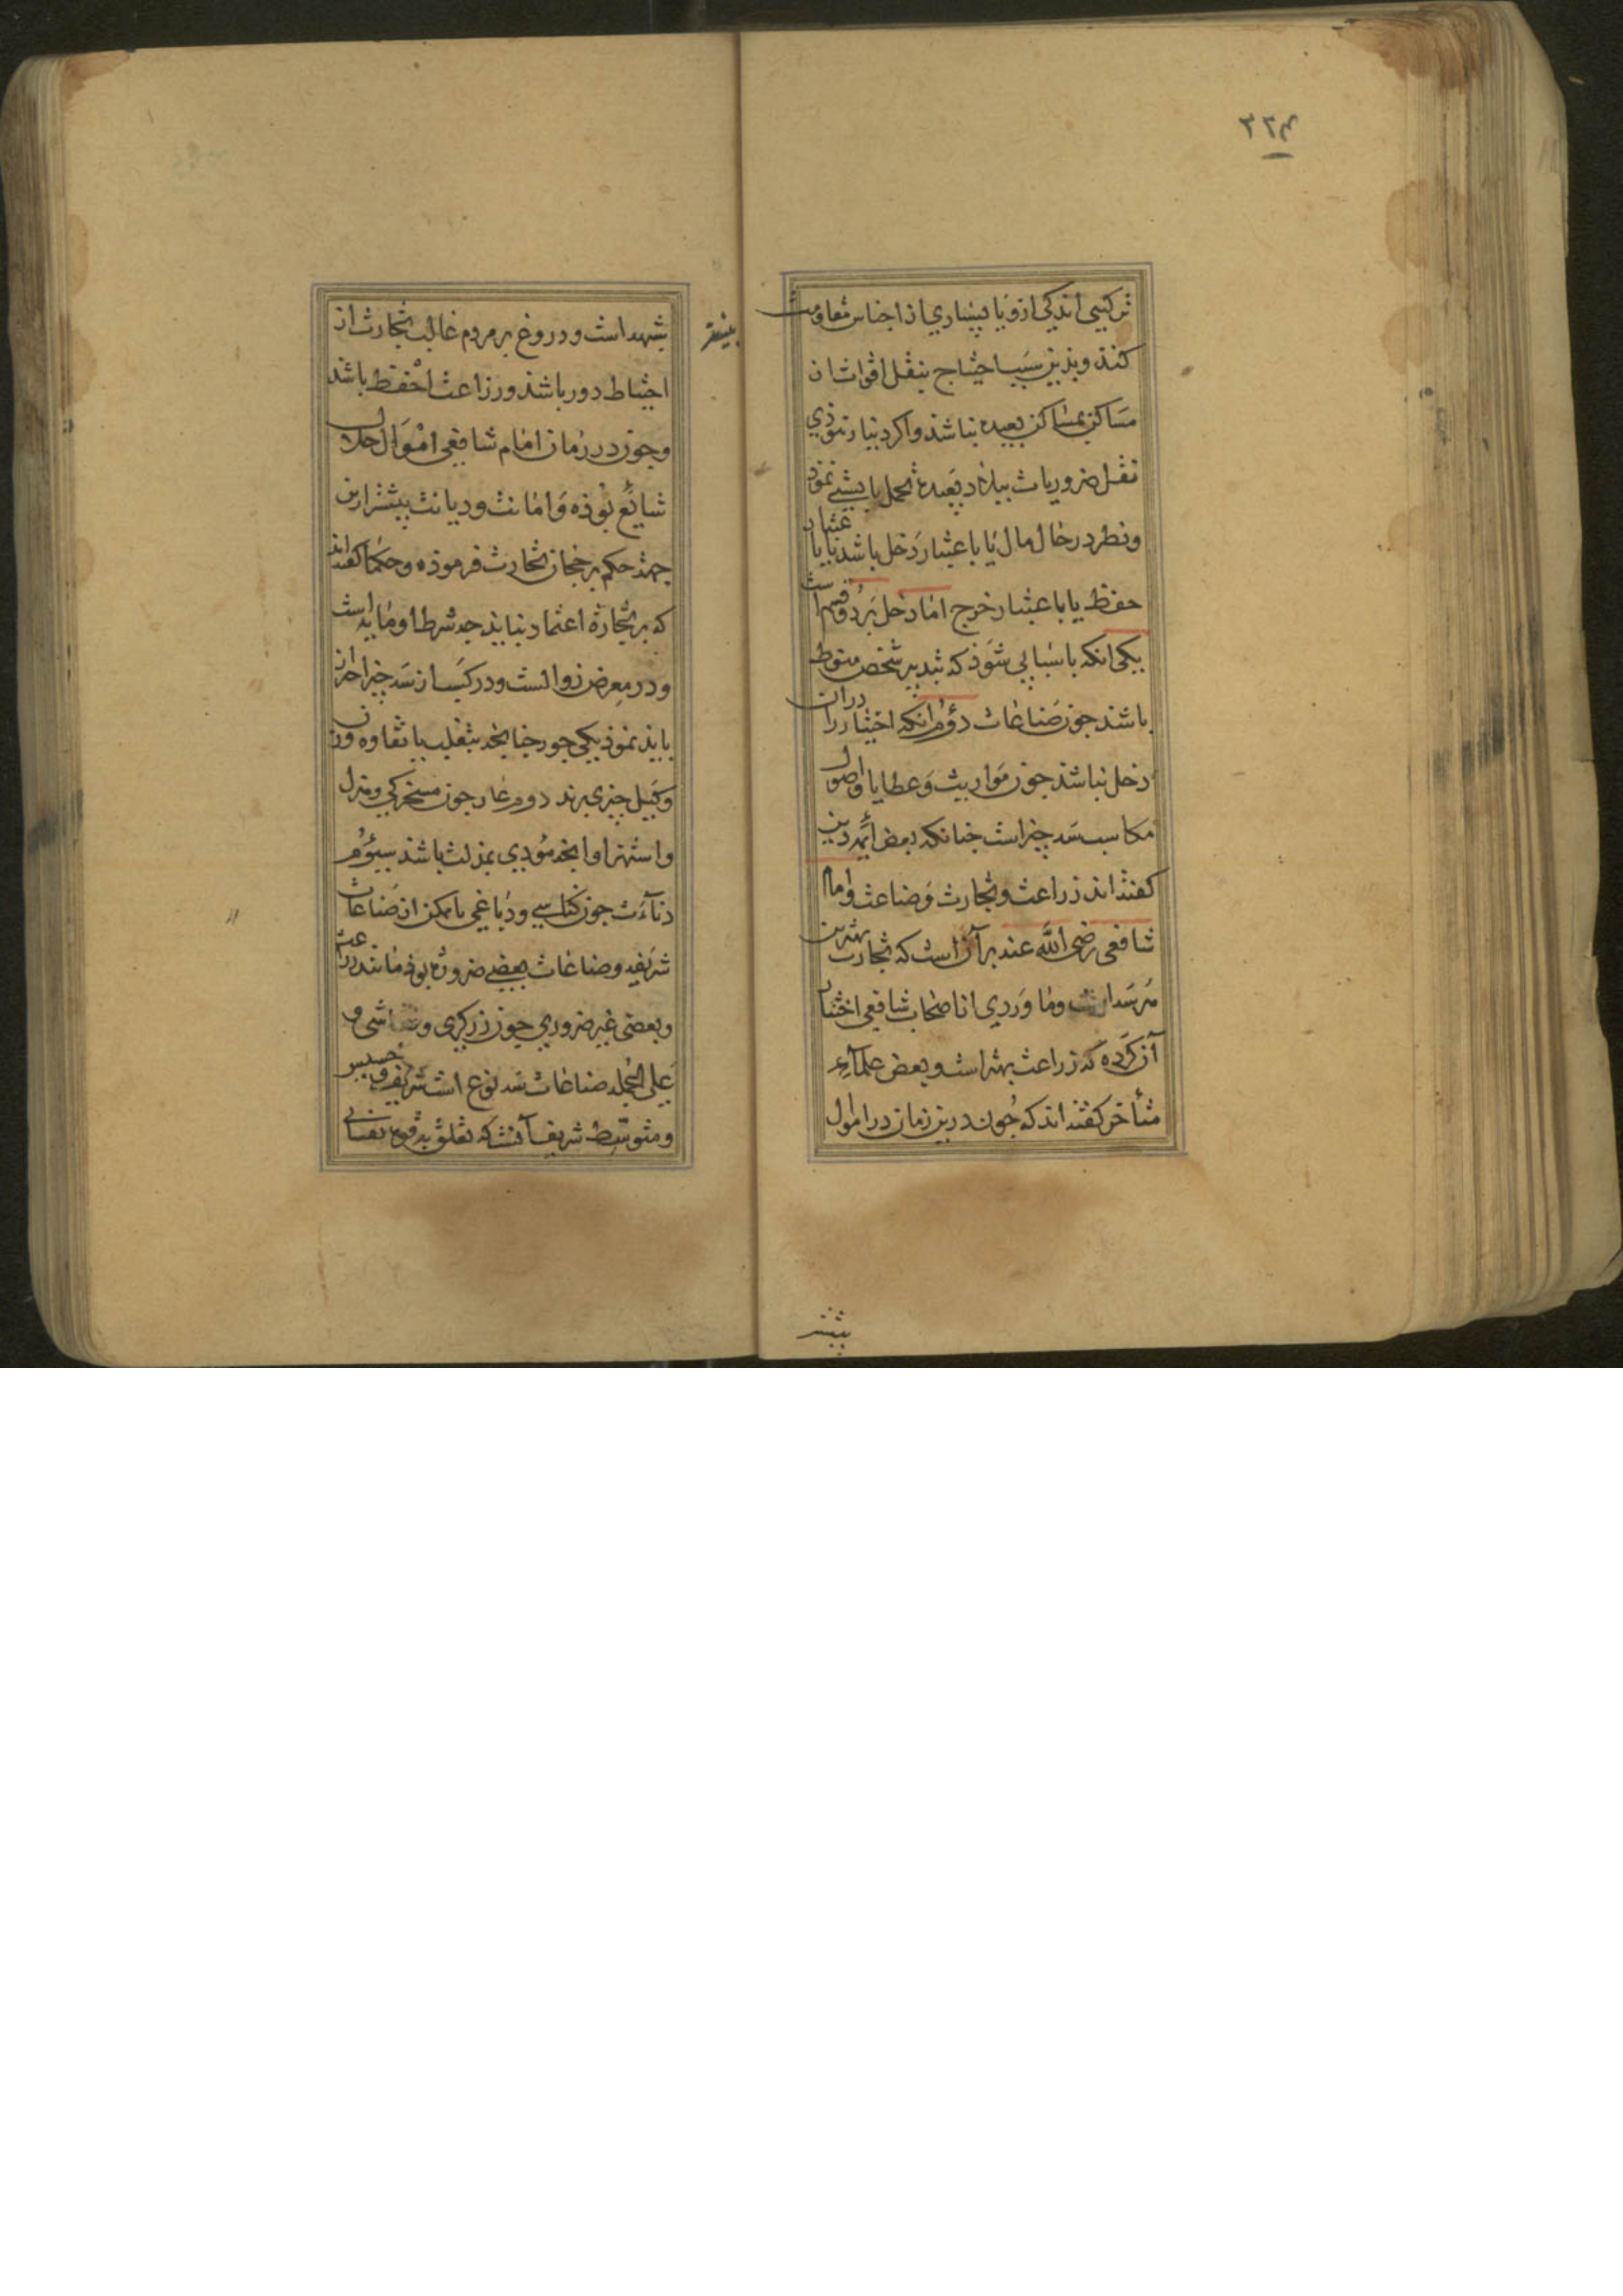 ۲۲۴
ترکیبی اندکی ازو با بسیاری از اجناس مقاومت
کند و بذین سبب احتیاج بنقل اقوات از
مساکن بمساکن بعیده نباشد و اکر دینار نبوذی
نقل ضروریات ببلاد بعیده تحمل بایستی نمود
و نظر در حال مال یا باعتبار دخل باشد یا با عتبار
حفظ یا باعتبار خرج اما دخل بر دو قسم است
یکی انکه باسبابی شود که بتدبیر شخص منوط
باشد جون صناعات دوم انکه اختیار را دران
دخل نباشد جون مواریث و عطایا و اصول
مکاسب سه جیز است جنانکه بعض ایمه دین
کفته اند زراعت و تجارت و صناعت و امام
شافعی رضی الله عنه بر آن است که تجارت بهترین
هر سه است و ماوردی از اصحاب شافعی اختیار
آن کرده که زراعت بهتر است و بعض علمآء
متأخر کفته اند که جون درین زمان در اموال
بیشتر
شبهه است و دروغ بر مردم غالب تجارت از
احتیاط دور باشد و زراعت احفظ باشد
و جون در زمان امام شافعی اموال حلال
شائع بوذه و امانت و دیانت بیشتر ازین
جهت حکم برجحان تجارت فرموده و حکما کفته اند
که بر تجارة اعتماد نباید جه شرط او مایه است
و در معرض زوالست و در کسب از سه جیز احتراز
باید نمود یکی جور جنانجه بتغلب یا تفاوت وزن
و کیل جیزی برند دوم عار جون مسخرکی و هزل
و استهزا و انجه مؤدی بمذلت باشد سیوم
دنآءت جون کناسی و دباغی با تمکن از صناعات
شریفه و صناعات بعضی ضروری بوذ مانند زراعت
و بعضی غیر ضروری جون زرکری و نقاشی و
علی الجمله صناعات سه نوع است شریف و خسیس
و متوسط شریف آنست که تعلق بقوت نفسانی
بیشتر